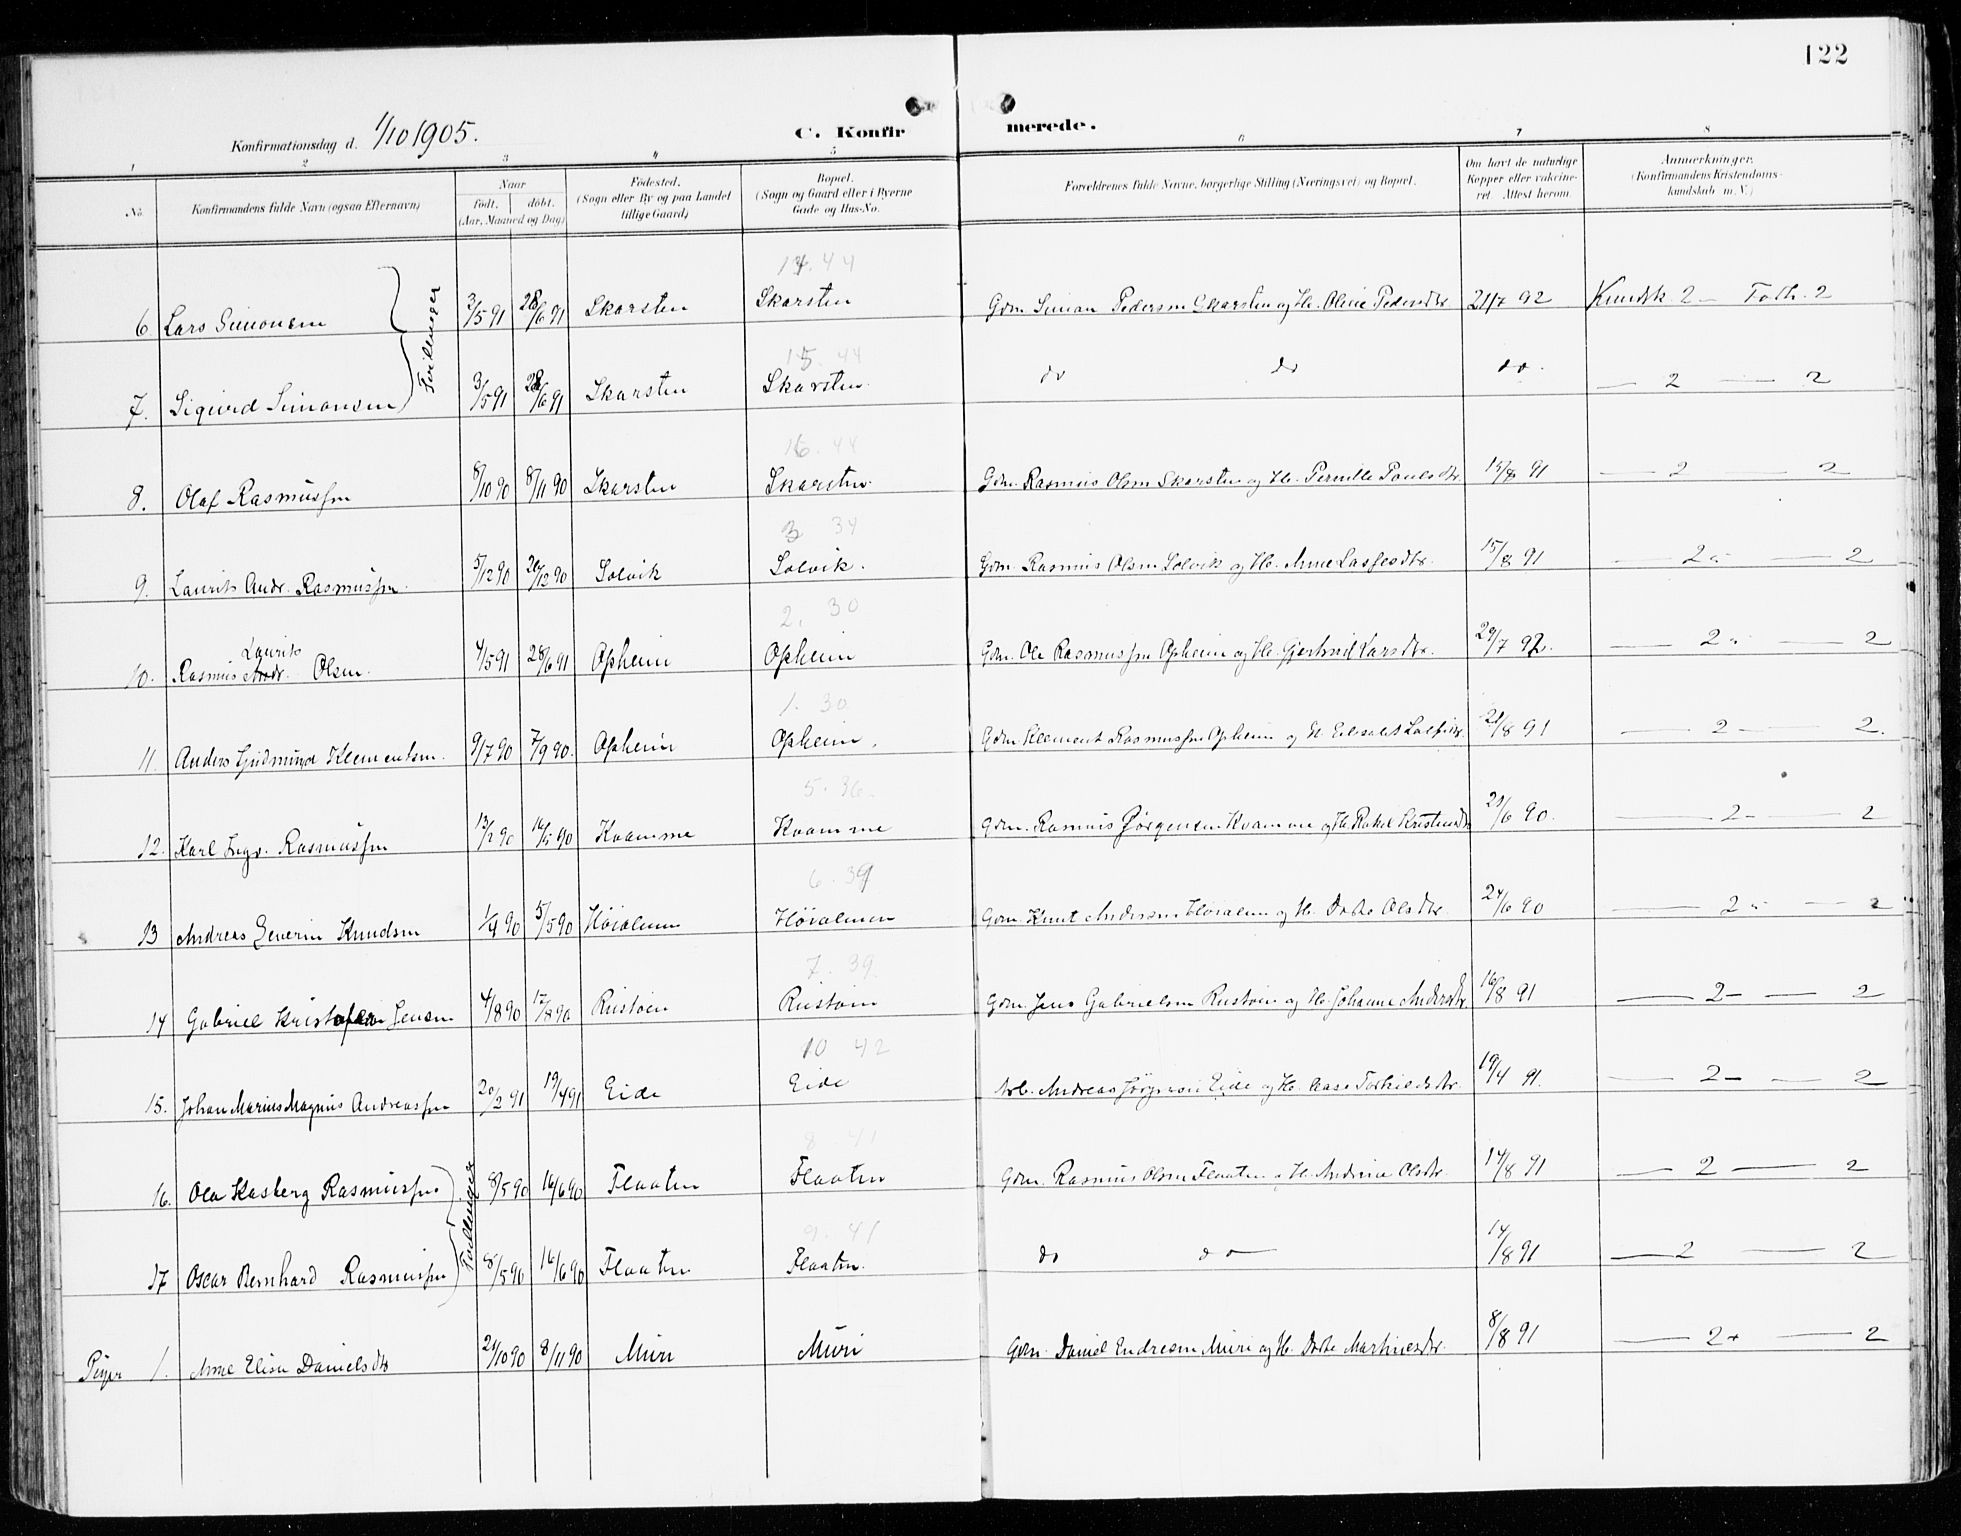 122
Konfirmationsdag d. 1/10 1905.
C. Konfirmerede.
1 2 3 4 5 6 7 8
No.
Konfirmandens fulde Navn (ogsaa Efternavn)
Naar
født. døbt.
(Aar, Maaned og Dag)
Fødested.
(Sogn eller By og paa Landet
tillige Gaard)
Bopæl.
(Sogn og Gaard eller i Byerne
Gade og Hus-No.
Forældrenes fulde Navne, borgerlige Stilling (Næringsvei) og Bopæl.
Om havt de naturlige
Kopper eller vaccine-
ret. Attest herom.
Anmærkninger.
(Konfirmandens Kristendoms-
kundskab m. V.)
14. 44
6 Lars Simonsen 3/5 91 28/6 91 Skarsten Skarsten Gdm. Simon Pedersen Skarsten og H. Oline Pedersdtr. 21/7 92 Kundsk. 2 - Forh. 2
Tvillinger
15. 44
7. Sigurd Simonsen 3/5 91 28/6 91 Skarsten Skarsten. do do do. — 2 — 2
16. 44
8. Olaf Rasmussen 8/10 90 8/11 90 Skarsten Skarsten. Gdm. Rasmus Olsen Skarsten og H. Pernille Paulsdtr. 15/8 91 — 2 — 2
3 34
9. Laurits Andr. Rasmussen. 5/12 90 26/12 90 Solvik Solvik. Gdm. Rasmus Olsen Solvik og H. Anne Lassesdtr. 15/8 91 — 2 — 2
2. 30
Laurits
10. Rasmus Andr. Olsen. 4/5 91 28/6 91 Opheim Opheim Gdm. Ole Rasmussen Opheim og H. Gjertrud Larsdtr. 29/7 92. — 2 — 2
1. 30
11. Anders Klementsen. 9/7 90 7/9 90. Opheim Opheim. Gdm. Klement Rasmussen Opheim og H. 21/8 91 — 2 — 2.
5. 36.
12. Karl Ingv. Rasmussen 13/2 90 16/5 90 Kvamme Kvamme Gdm. Rasmus Jørgensen Kvamme og H. Rakel Kristensdtr 21/6 90. — 2 - — 2
6. 39
13 Andreas Severin Knudsen 1/4 90 5/5 90 Høialmen Høialmen Gdm. Knut Andersen Høialmen og H. Dorte Olsdtr. 24/6 90 — 2 — 2
7. 39.
14 Gabriel Kristofer Jensen 4/8 90 17/8 90 Rustøen Rustøen Gdm. Jens Gabrielsen Rustøen og H. Johanne Andersdtr. 16/8 91 — 2 - — 2
10 42
15. Johan Marius Magnus Andreassen 20/2 91 19/4 91 Eide Eide Arb. Andreas Jørgensen Eide og H. Aase Torkildsdtr. 19/4 91. — 2 - — 2
8 41
16. Ola Kasberg Rasmussen 8/5 90 16/6 90 Flaaten Flaaten Gdm. Rasmus Olsen Flaaten og H. Andrine Olsdtr. 14/8 91 — 2 — 2
Tvillinger
9. 41
17 Oscar Bernhard Rasmussen 8/5 90 16/6 90 Flaaten Flaaten. do do — 14/8 91 — 2 — 2
Piger 1. Anne Elisa Danielsdtr 21/10 90 8/11 90 Muri Muri Gdm. Daniel Endresen Muri og H. Dorte Martinusdtr. 8/8 91 — 2+ — 2